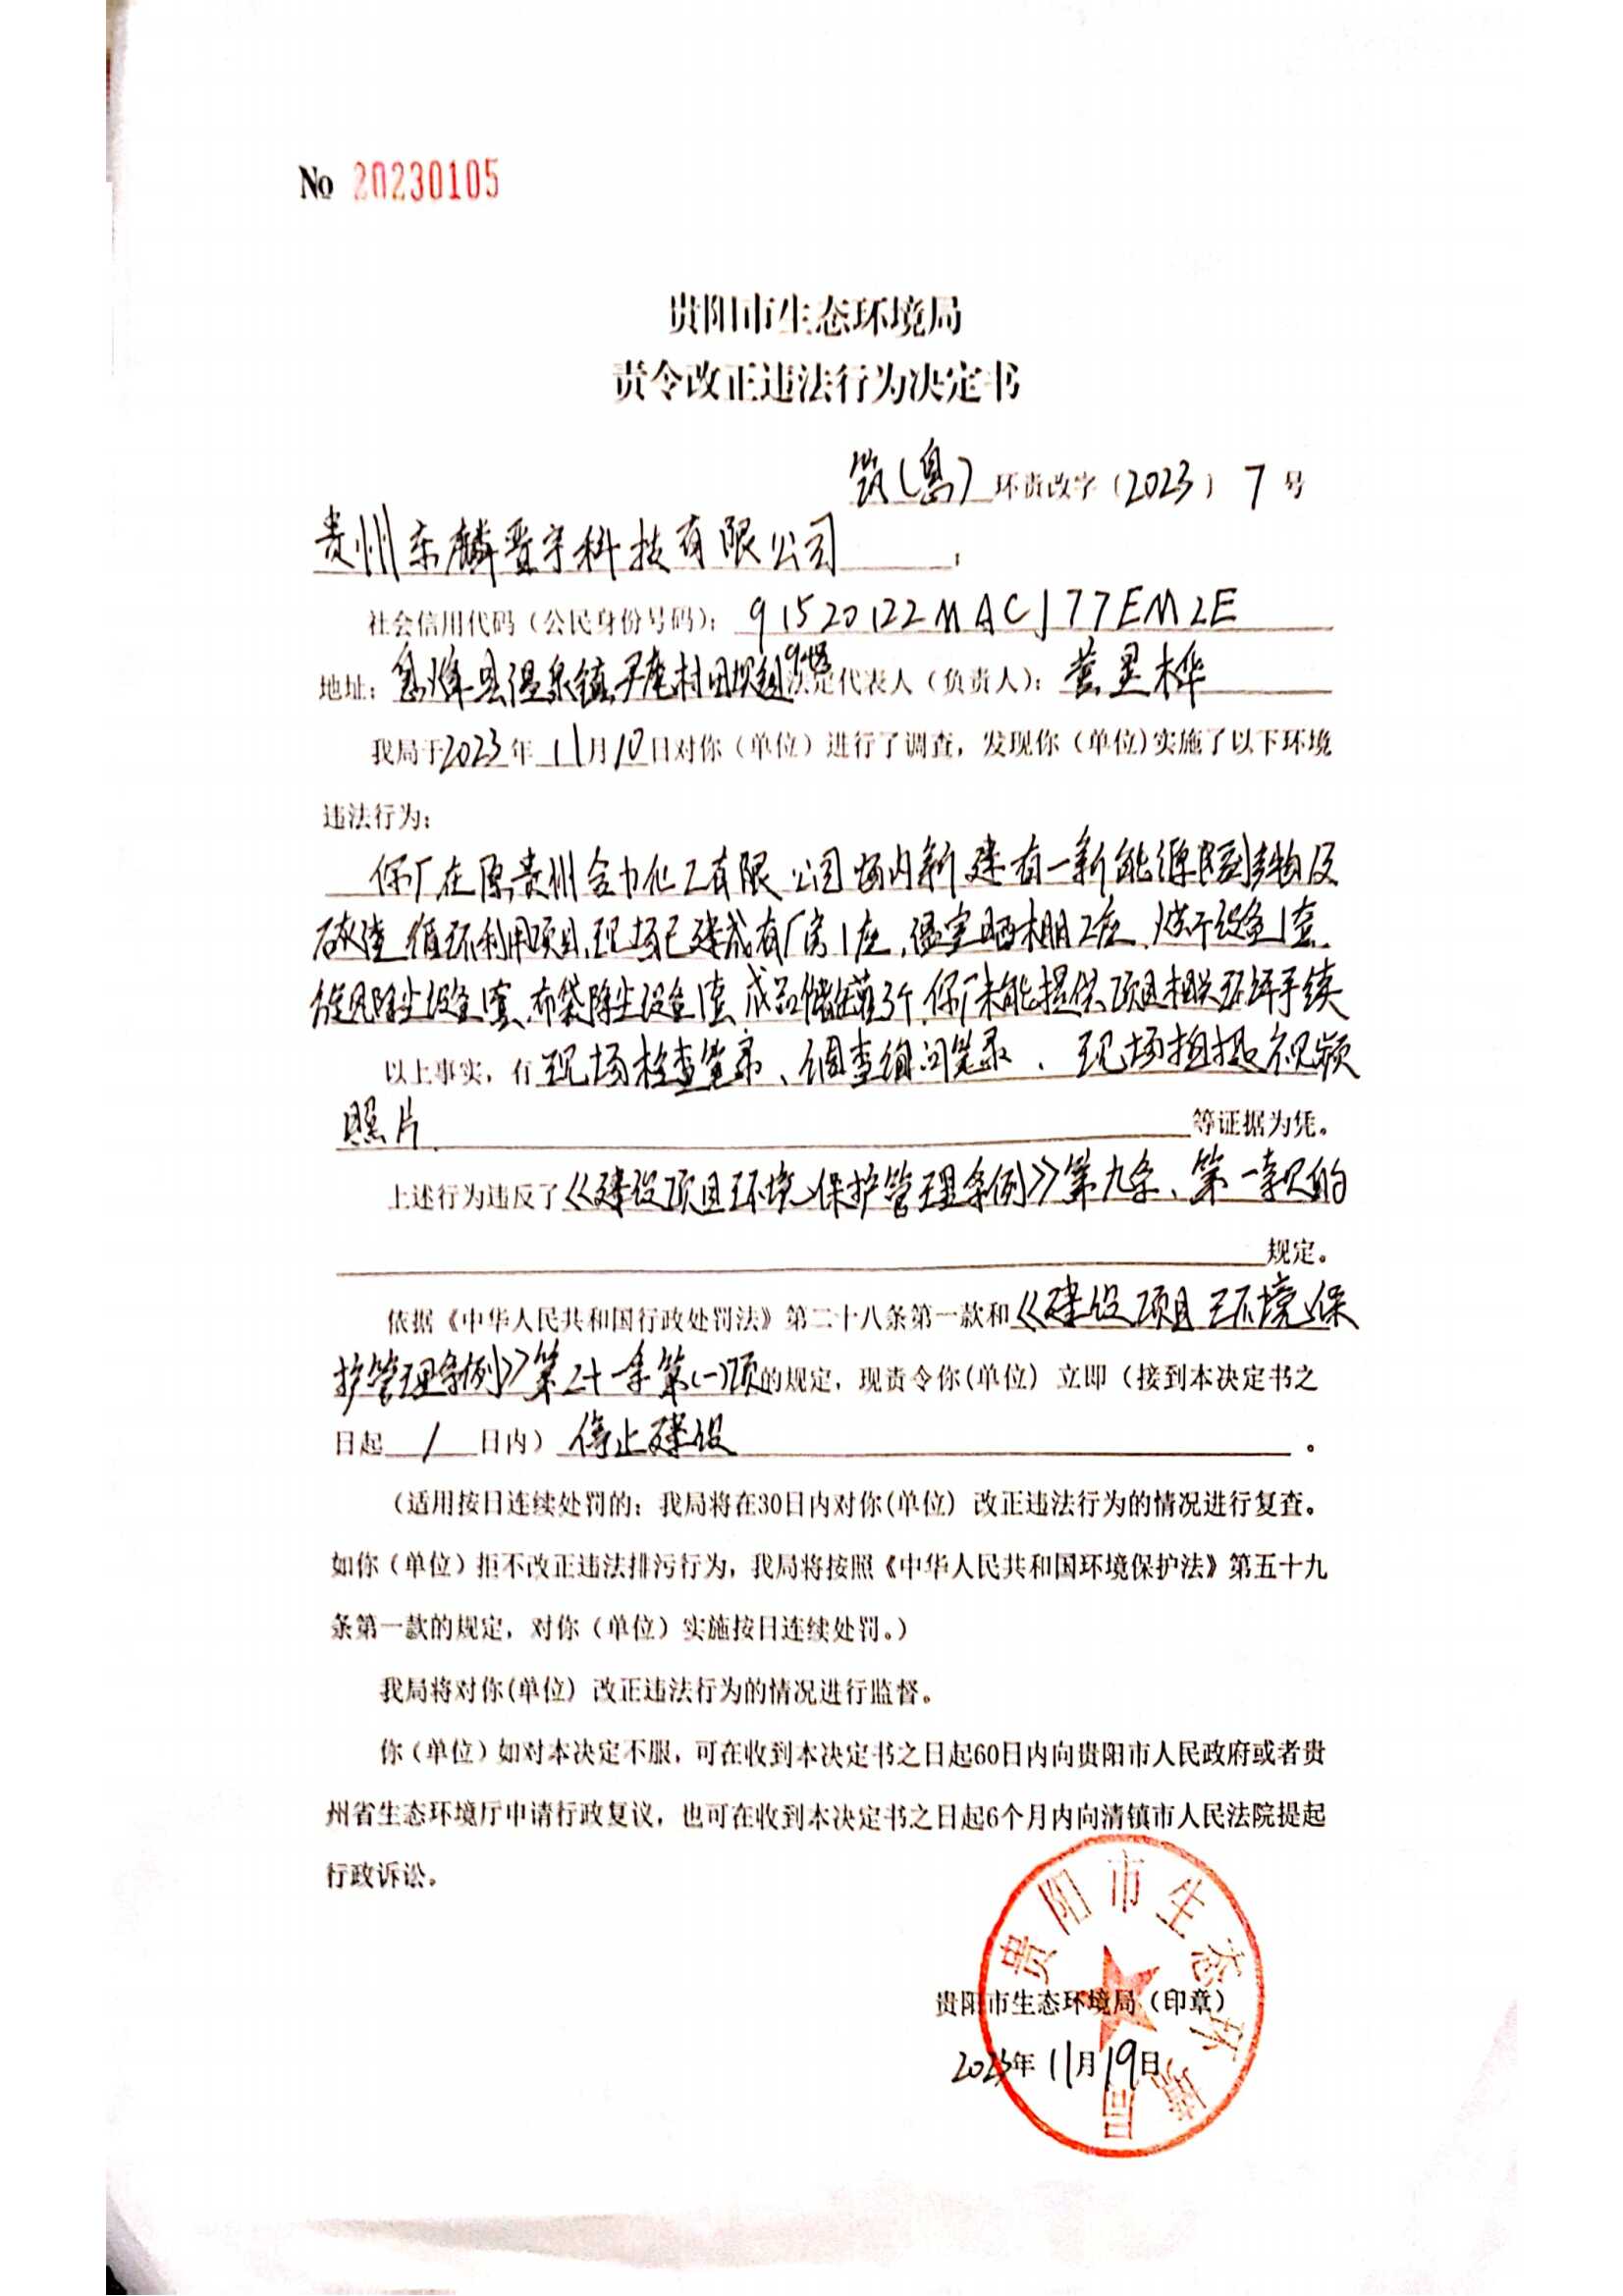 No 20230105
贵阳市生态环境局
责令改正违法行为决定书
筑(息)环责改字(2023)7号
贵州东麟晋宇科技有限公司:
社会信用代码(公民身份号码):91520122MACJ77EM2E
地址:息烽县温泉镇尹庵村田坝 法定代表人(负责人):黄星桦
我局于2023年11月10日对你(单位)进行了调查,发现你(单位)实施了以下环境
违法行为:
你厂在原贵州合力化工有限公司场内新建有一新能源 物及
碳渣循环利用项目,现场已建成有厂房1座,温室晒棚2座、烘干设备1套、
旋风除尘设备1套、布袋除尘设备1套、成品储罐3个,你厂未能提供项目相关环评手续
以上事实,有现场检查笔录、调查询问笔录、现场拍摄视频
照片 等证据为凭。
上述行为违反了《建设项目环境保护管理条例》第九条、第一款的
规定。
依据《中华人民共和国行政处罚法》第二十八条第一款和《建设项目环境保
护管理条例》第二十一条第(一)项的规定,现责令你(单位)立即(接到本决定书之
日起 / 日内)停止建设。
(适用按日连续处罚的:我局将在30日内对你(单位)改正违法行为的情况进行复查。
如你(单位)拒不改正违法排污行为,我局将按照《中华人民共和国环境保护法》第五十九
条第一款的规定,对你(单位)实施按日连续处罚。)
我局将对你(单位)改正违法行为的情况进行监督。
你(单位)如对本决定不服,可在收到本决定书之日起60日内向贵阳市人民政府或者贵
州省生态环境厅申请行政复议,也可在收到本决定书之日起6个月内向清镇市人民法院提起
行政诉讼。
贵阳市生态环境局
贵阳市生态环境局(印章)
2023年11月19日